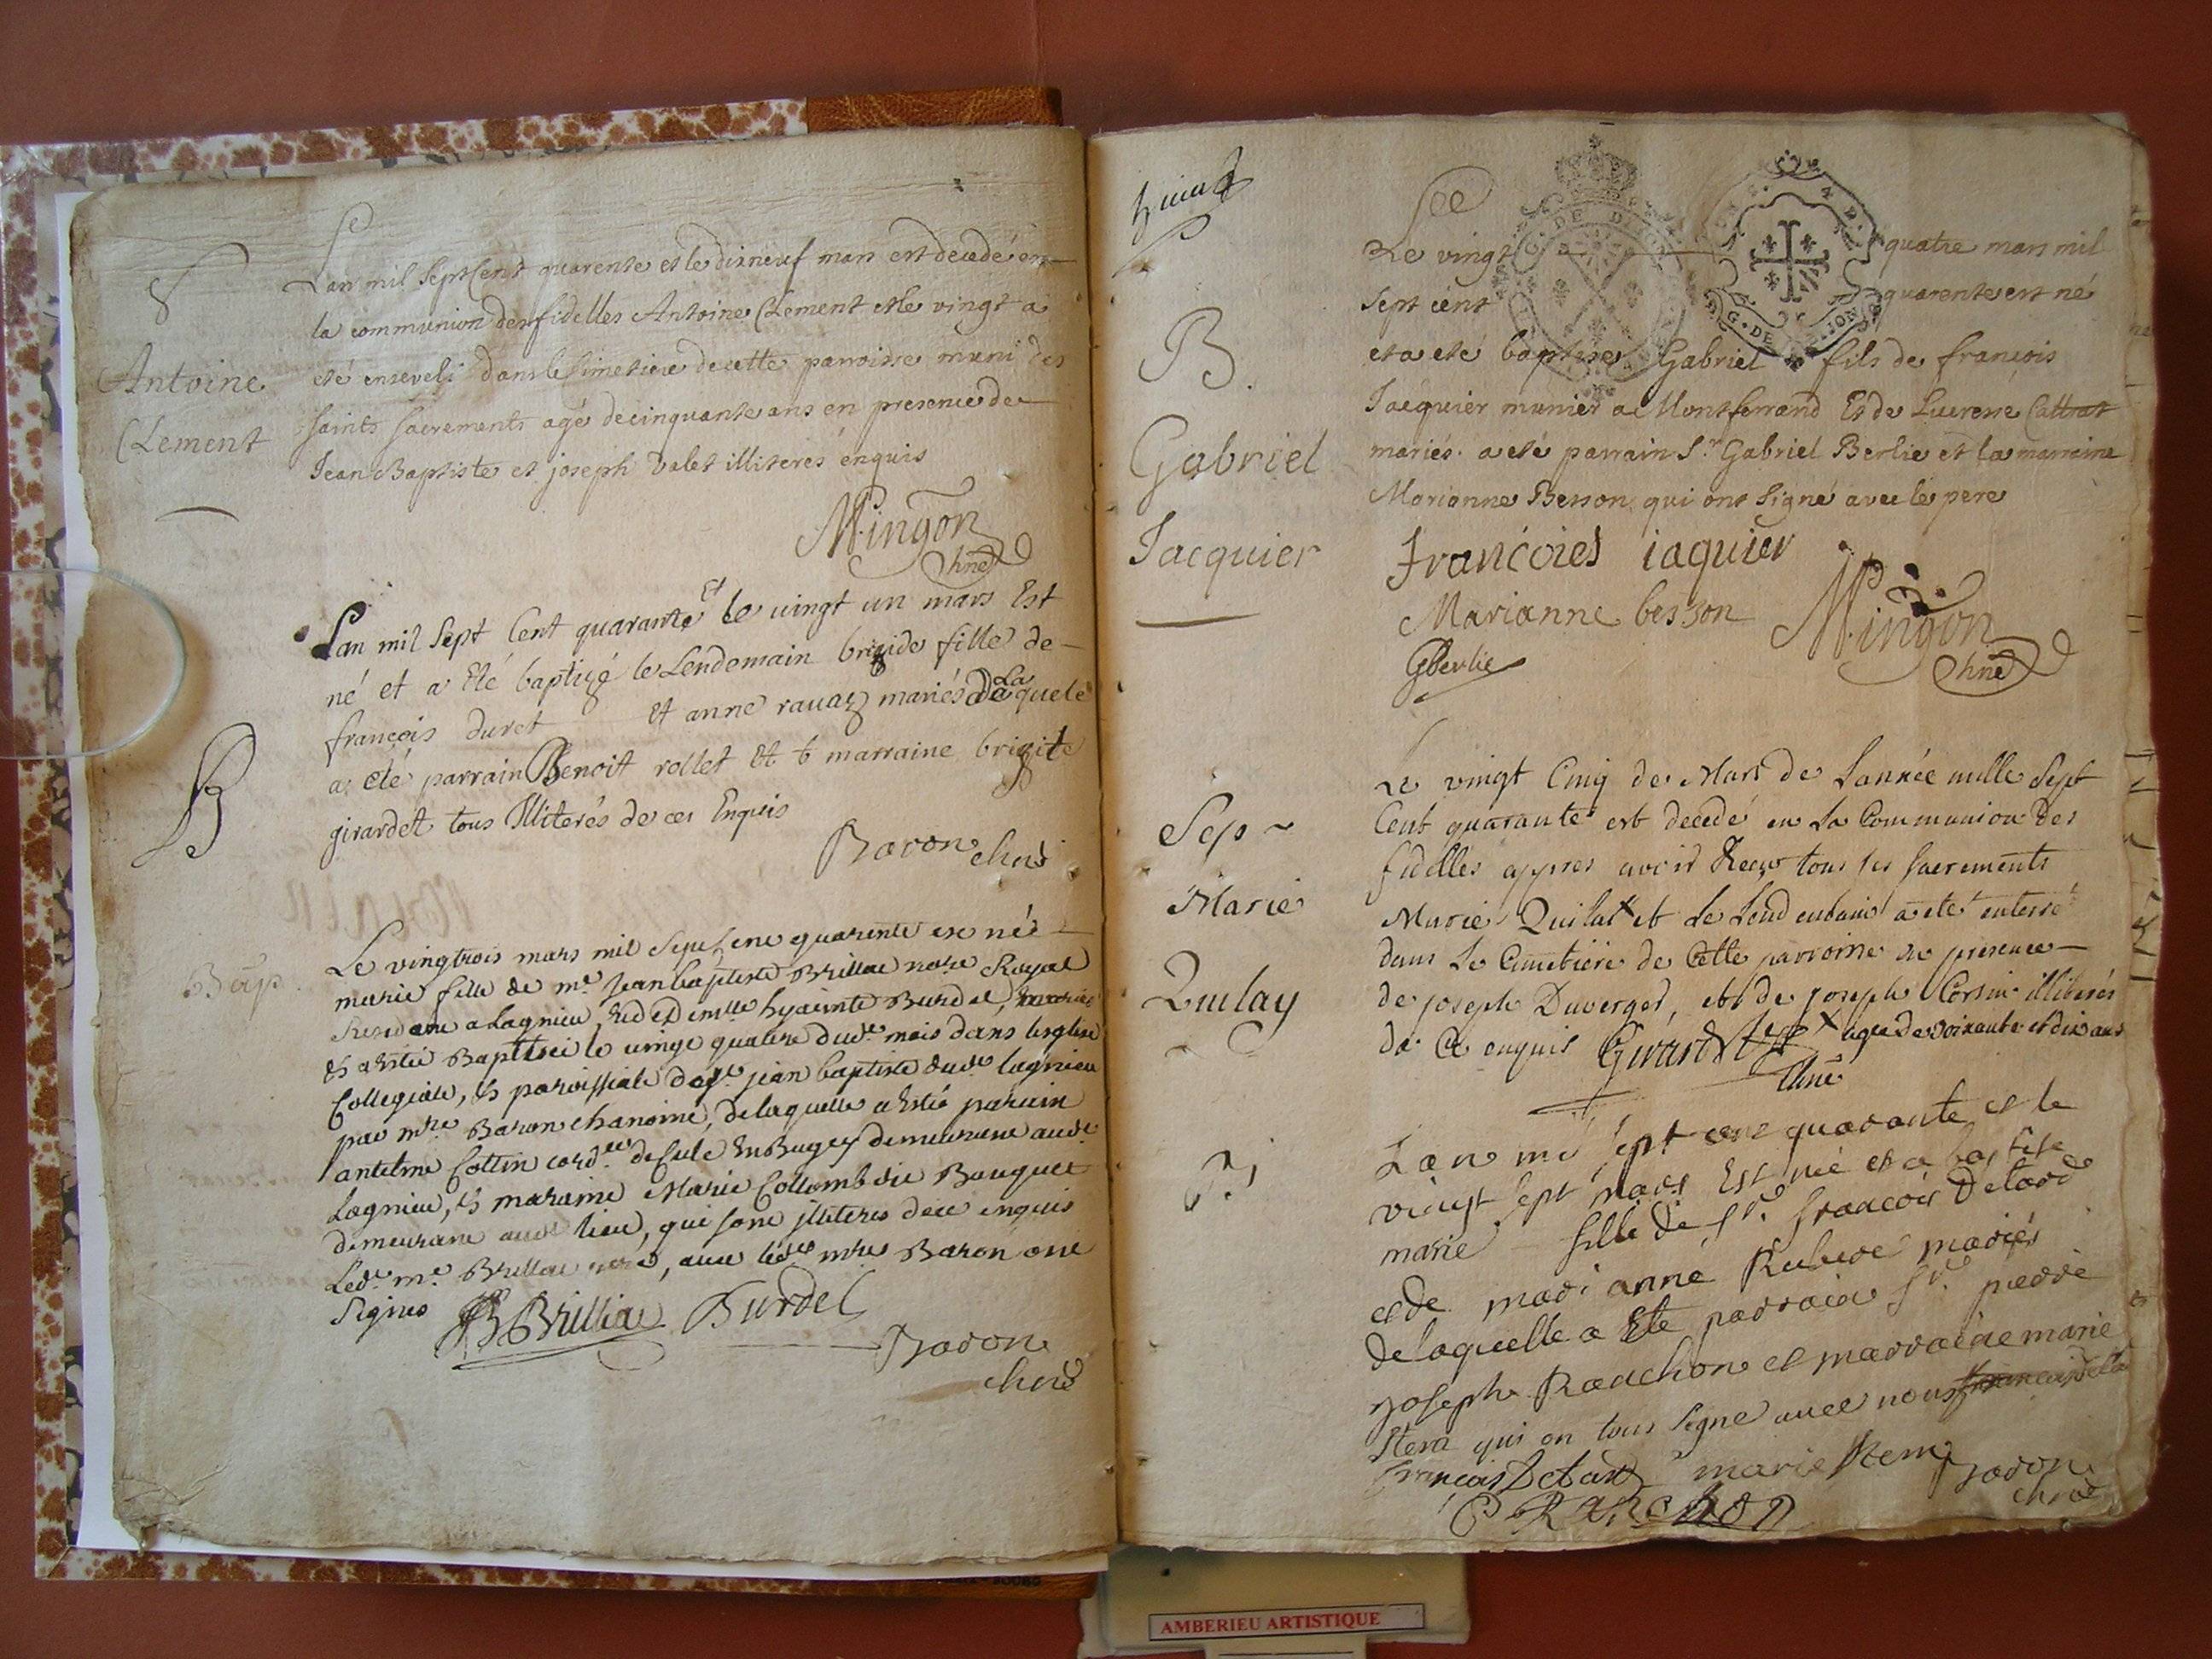 S
Antoine
Clement
Lan mil Sept Cent quarente et le dixneuf mars est decedé en
la communion des fidelles Antoine Clement et le vingt a
eté enseveli dans le Simetiere de cette parroisse muni des
saints sacrements agé de cinquante ans en presence de
Jean Baptiste et joseph valet illiterés enquis
Mingon
chne
B
Lan mil Sept Cent quarante Et le vingt un mars Est
né et a Eté baptizé le Lendemain brigide fille de
françois duret et anne ravaz mariés De La quele
a eté parrain Benoit rollet Et marraine brigite
girardet tous Illiterés de ces Enquis
Baron chne
Bap.
Le vingtrois mars mil Sept Cent quarente est né
marie fille de me Jean baptiste Brillat nore Royal
Residant a Lagnieu, Et de Demlle hyacinte Burdel, mariés
Et a esté Baptisée le vingt quatre dud. mois dans lesglise
Collegiale, Et paroissiale de st jean baptiste dud. lagnieu
par mre Baron chanoine, de laquelle a Esté parain
antelme Cottin cord.er de Cule En Bugey demeurant aud.
Lagnieu, Et maraine Marie Collomb die Bouquet
demeurant aud. lieu, qui sont illiterés de ce enquis
Led. me Brillat nore, avec led. mre Baron ont
Signés JB Brilliat Burdel
Baron
chne
B.
Gabriel
Jacquier
Le vingt quatre mars mil
Sept cent quarente est né
et a eté baptisé Gabriel fils de francois
Jacquier munier a Montferrand Et de Lucresse Cattrat
mariés. a eté parrain Sr Gabriel Berlie et la marraine
Marianne Besson qui ont Signé avec le pere
Francoies iaquier
Marianne besson Mingon
GBerlie chne
Sep
Marie
Quilay
Le vingt Cinq de Mars de Lannée mille Sept
Cent quarante est decedé en La Communion des
fidelles appres avoir Reçu tous les sacrements
Marie Quilat x et Le Lendemain a eté enterré
dans Le Cimetiere de Cette parroisse en presence
de joseph Duverger, et de joseph Corsin illiterés
de Ce enquis Girard x agée de soixante et dix ans
chne
Lan mil sept cent quarante et le
vingt sept mars Est né et a baptisé
marie fille de sr. françois Detard
et de mari anne Rubere mariés
de laquelle a Eté parrain Sr. pierre
joseph Rauchon et marraine marie
Stem qui on tous signé avec nous
françois Detard marie Stem Baron
P Rauchon chne
G. DE DIJON
AMBERIEU ARTISTIQUE